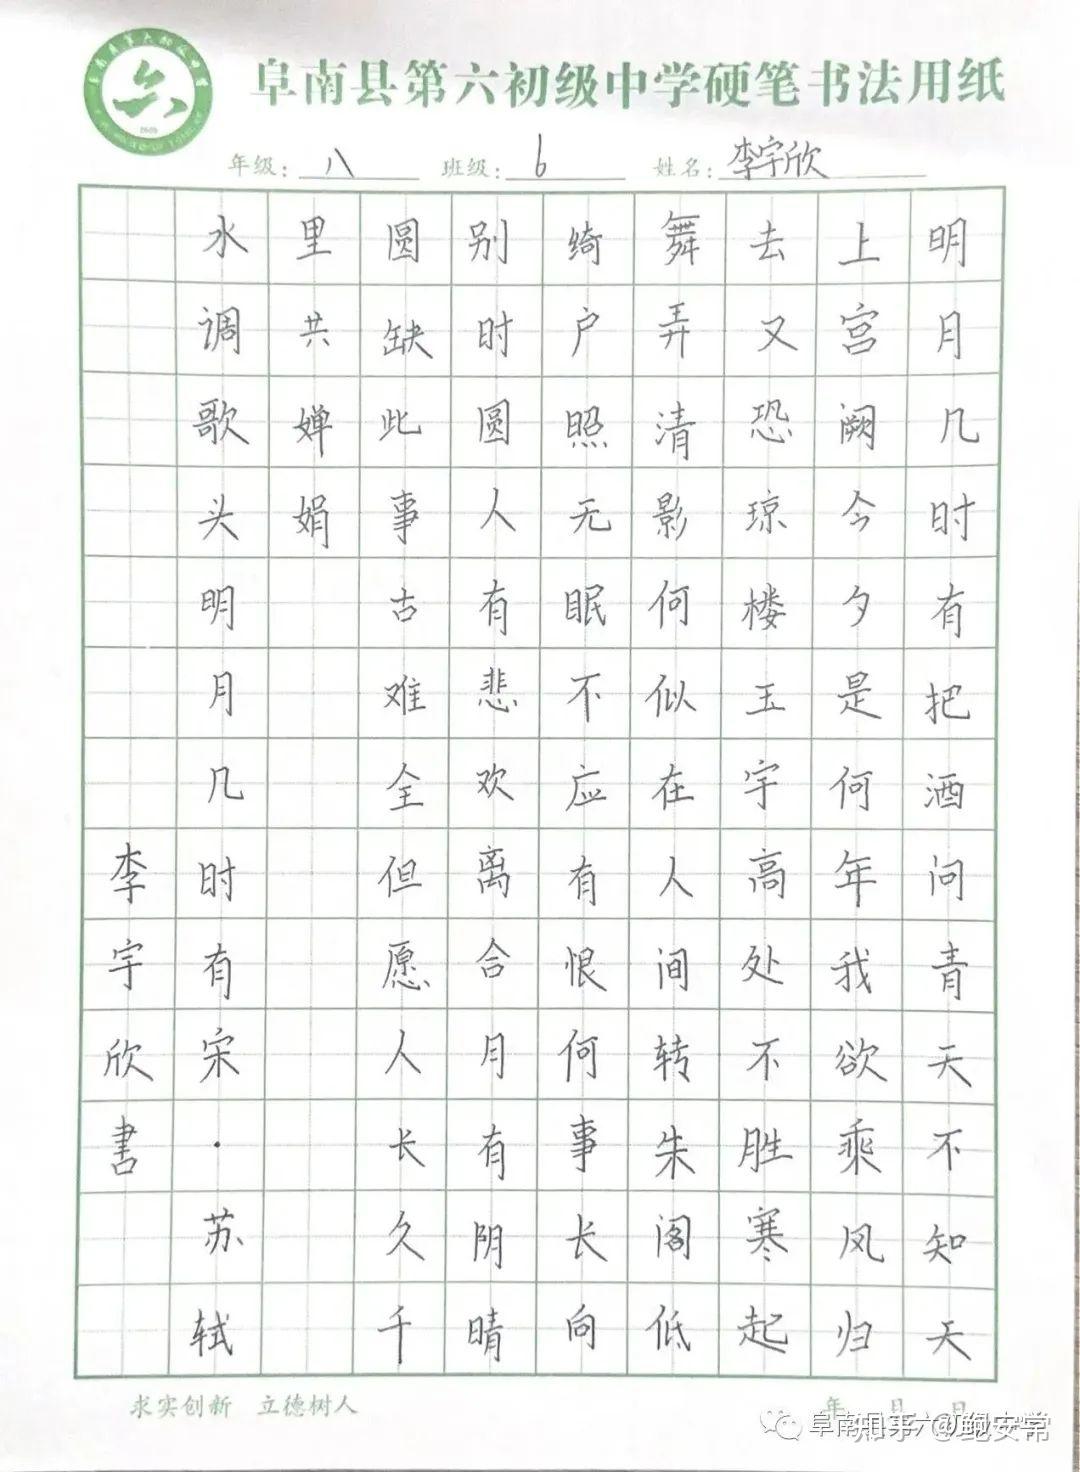 阜南县第六初级中学硬笔书法用纸
年级：八 班级：6 姓名：李宇欣
明月几时有把酒问青天不知天
上宫阙今夕是何年我欲乘风归
去又恐琼楼玉宇高处不胜寒起
舞弄清影何似在人间转朱阁低
绮户照无眠不应有恨何事长向
别时圆人有悲欢离合月有阴晴
圆缺此事古难全但愿人长久千
里共婵娟
水调歌头明月几时有宋·苏轼
李宇欣書
求实创新 立德树人
年 月 日
知乎 @鲍安常